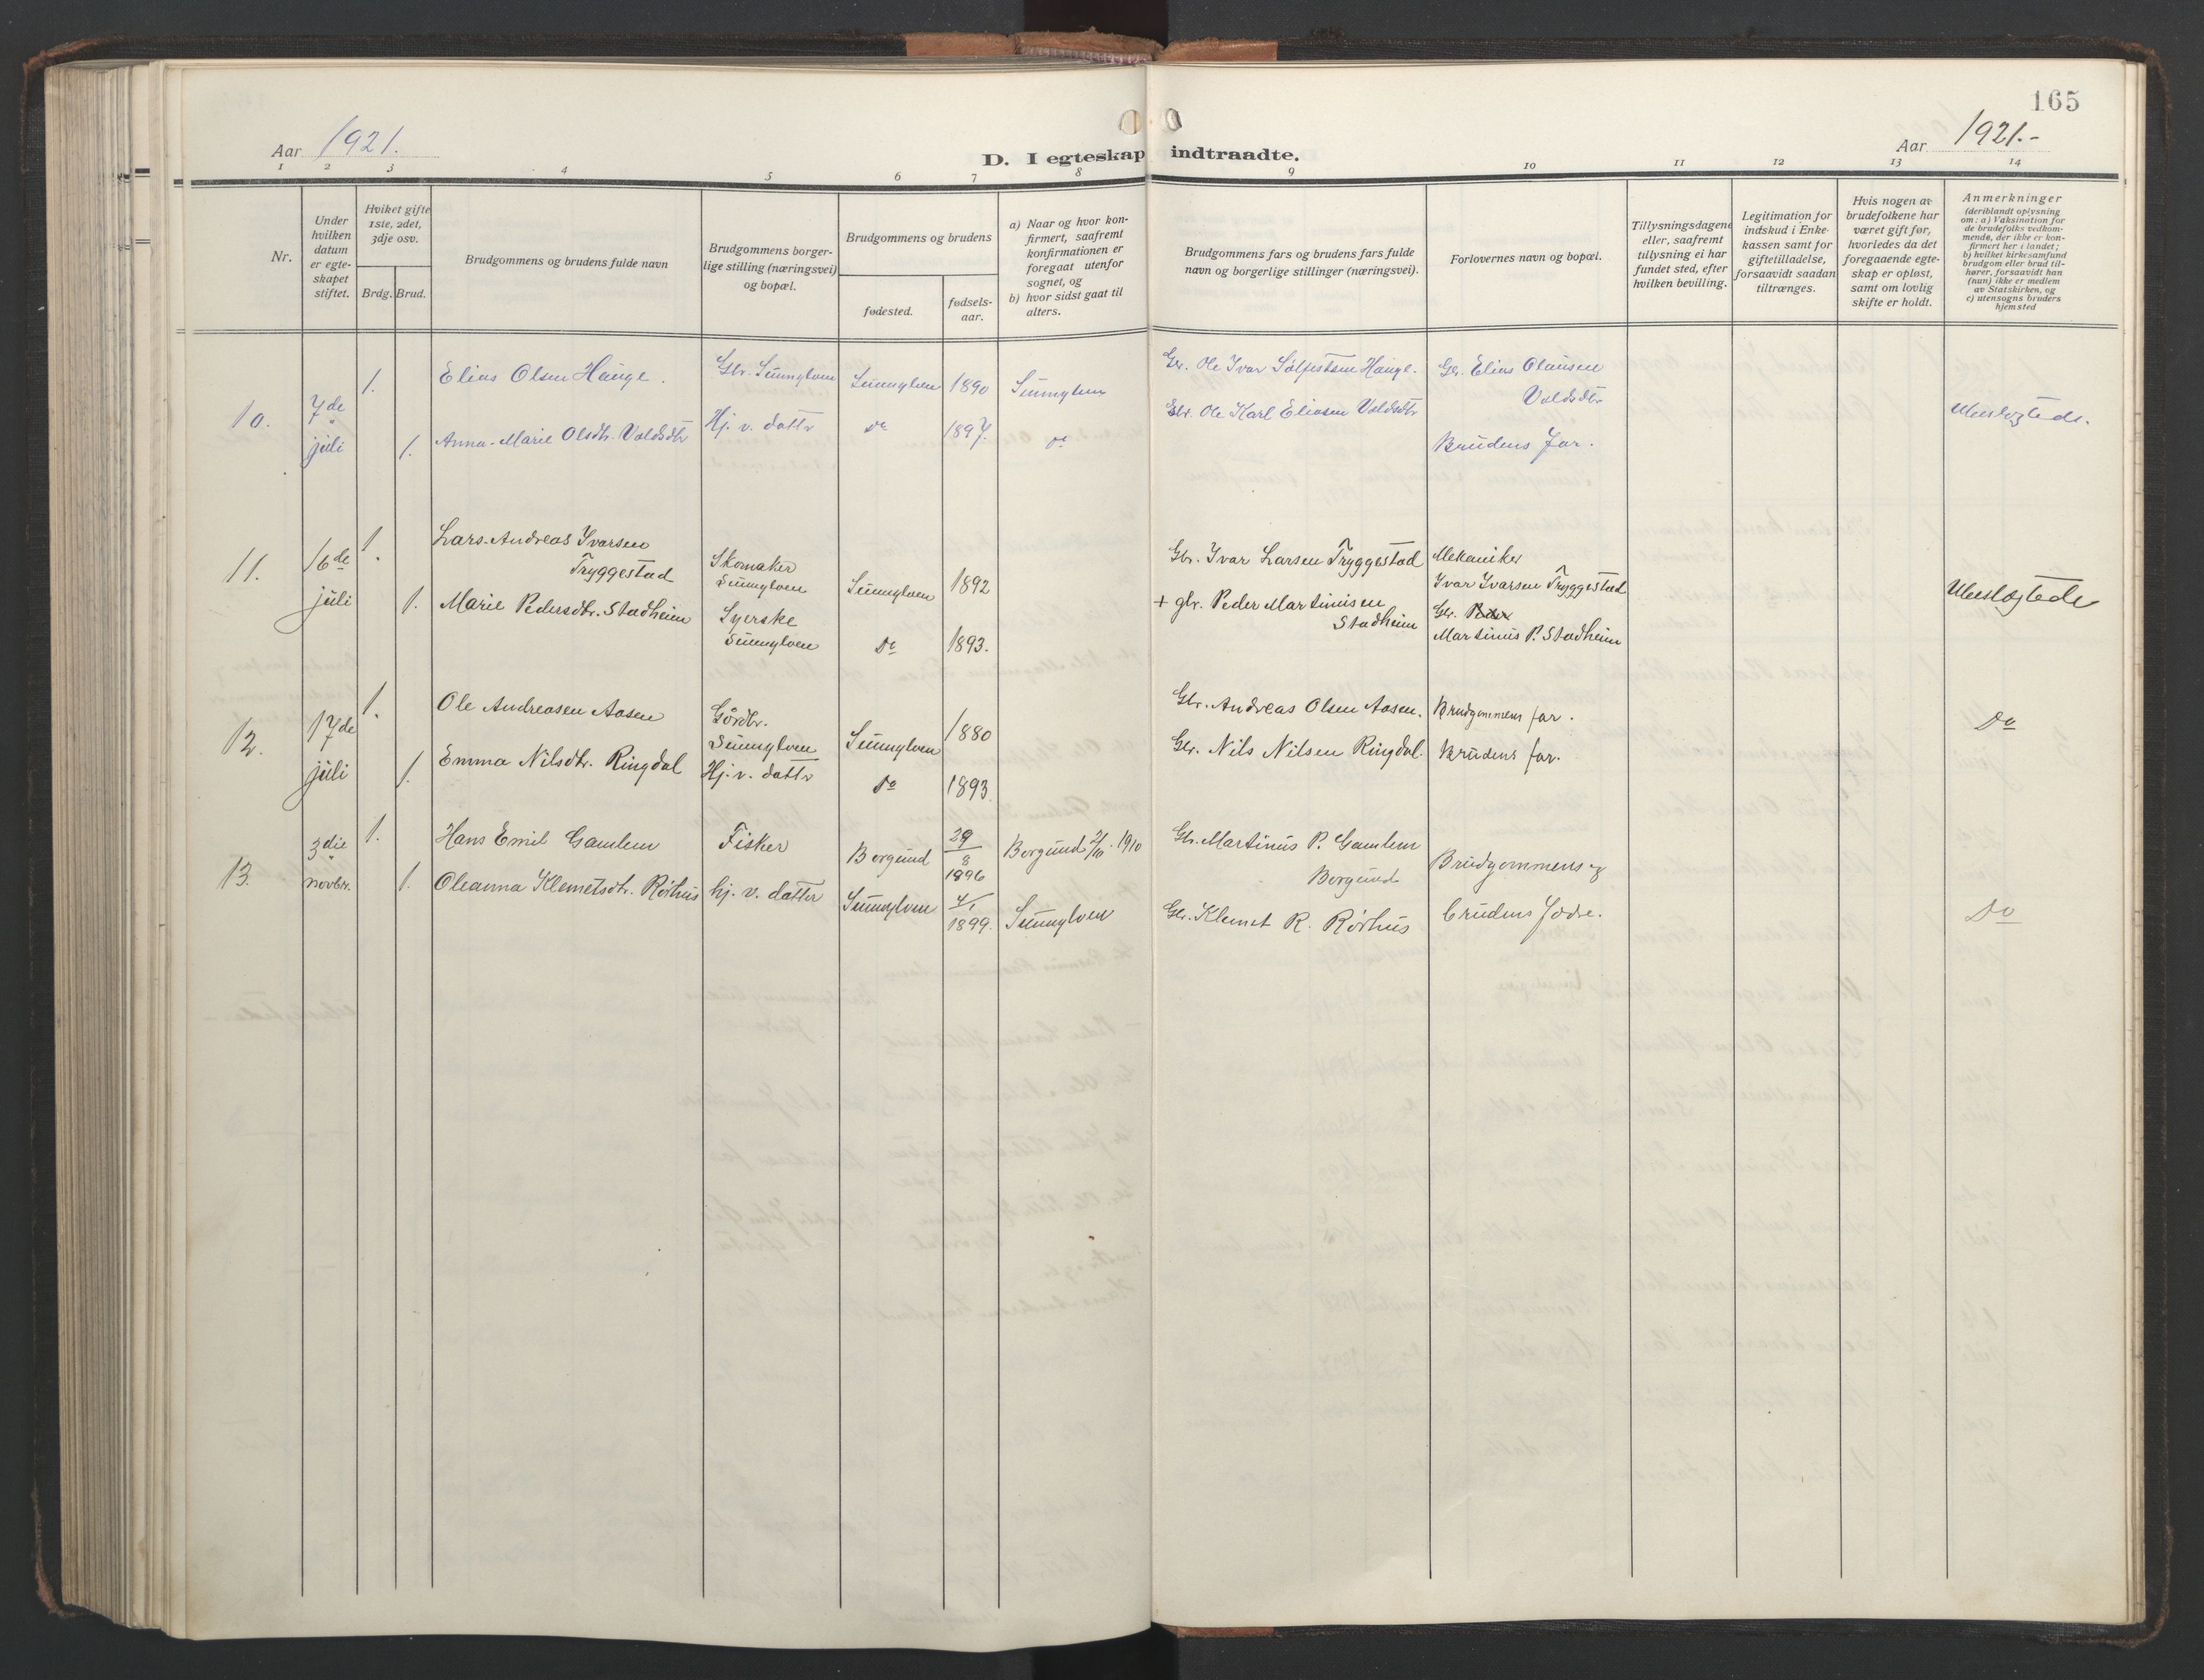 165
Aar 1921.
D. I egteskap indtraadte.
Aar 1921.-
1 2 3 4 5 6 7 8 9 10 11 12 13 14
Nr.
Under hvilken datum er egte-skapet stiftet.
Hviket gifte 1ste, 2det, 3dje osv.
Brdg. Brud.
Brudgommens og brudens fulde navn
Brudgommens borger-lige stilling (næringsvei) og bopæl.
Brudgommens og brudens
fødested.
fødsels-aar.
a) Naar og hvor kon-firmert, saafremt konfirmationen er foregaat utenfor sognet, og
b) hvor sidst gaat til alters.
Brudgommens fars og brudens fars fulde navn og borgerlige stillinger (næringsvei).
Forlovernes navn og bopæl.
Tillysningsdagene eller, saafremt tillysning ei har fundet sted, efter hvilken bevilling.
Legitimation for indskud i Enke-kassen samt for giftetilladelse, forsaavidt saadan tiltrænges.
Hvis nogen av brudefolkene har været gift før, hvorledes da det foregaaende egte-skap er opløst, samt om lovlig skifte er holdt.
Anmerkninger
(deriblandt oplysning om: a) Vaksination for de brudefolks vedkom-mende, der ikke er kon-firmert her i landet; b) hvilket kirkesamfund brudgom eller brud til-hører, forsaavidt han (nun) ikke er medlem av Statskirken, og c) utensogns bruders hjemsted
10. 7de juli
1. Elias Olsen Hauge. Gbr. Sunnylven Sunnylven 1890 Sunnylven Gbr. Ole Ivar Sølfestsen Hauge. Gbr. Elias Olausen Voldsdbr
1. Anna-Marie Olsdtr. Voldsdbr Hj. v. datter do 1897. do Gbr. Ole Karl Eliasen Voldsdbr Brudens Far.
Ubeslegtede.
11. 16de juli
1. Lars-Andreas Ivarsen Tryggestad Skomaker Sunnylven Sunnylven 1892 Gbr. Ivar Larsen Tryggestad Mekaniker Ivar Ivarsen Tryggestad
1. Marie Pedersdtr. Stadheim Syerske Sunnylven Do 1893. + gbr. Peder Martinusen Stadheim Gbr. Peder Martinus P. Stadheim
Ubeslegtede
12. 17de juli
1. Ole Andreasen Aasen Gårdbr. Sunnylven Sunnylven 1880 Gbr. Andreas Olsen Aasen. Brudgommens far.
1. Emma Nilsdtr. Ringdal Hj. v. datter Do 1893 Gbr. Nils Nilsen Ringdal. Brudens far.
Do
13. 3die novbr.
1. Hans Emil Gamlem Fisker Borgund 29/8 1896 Borgund 2/10 1910 Gbr. Martinus P. Gamlem Borgund Brudgommens og
1. Oleanna Klemetsdtr. Rørhus hj. v. datter Sunnylven 4/1 1899. Sunnylven Gbr. Klemet R. Rørhus brudens Fædre.
Do